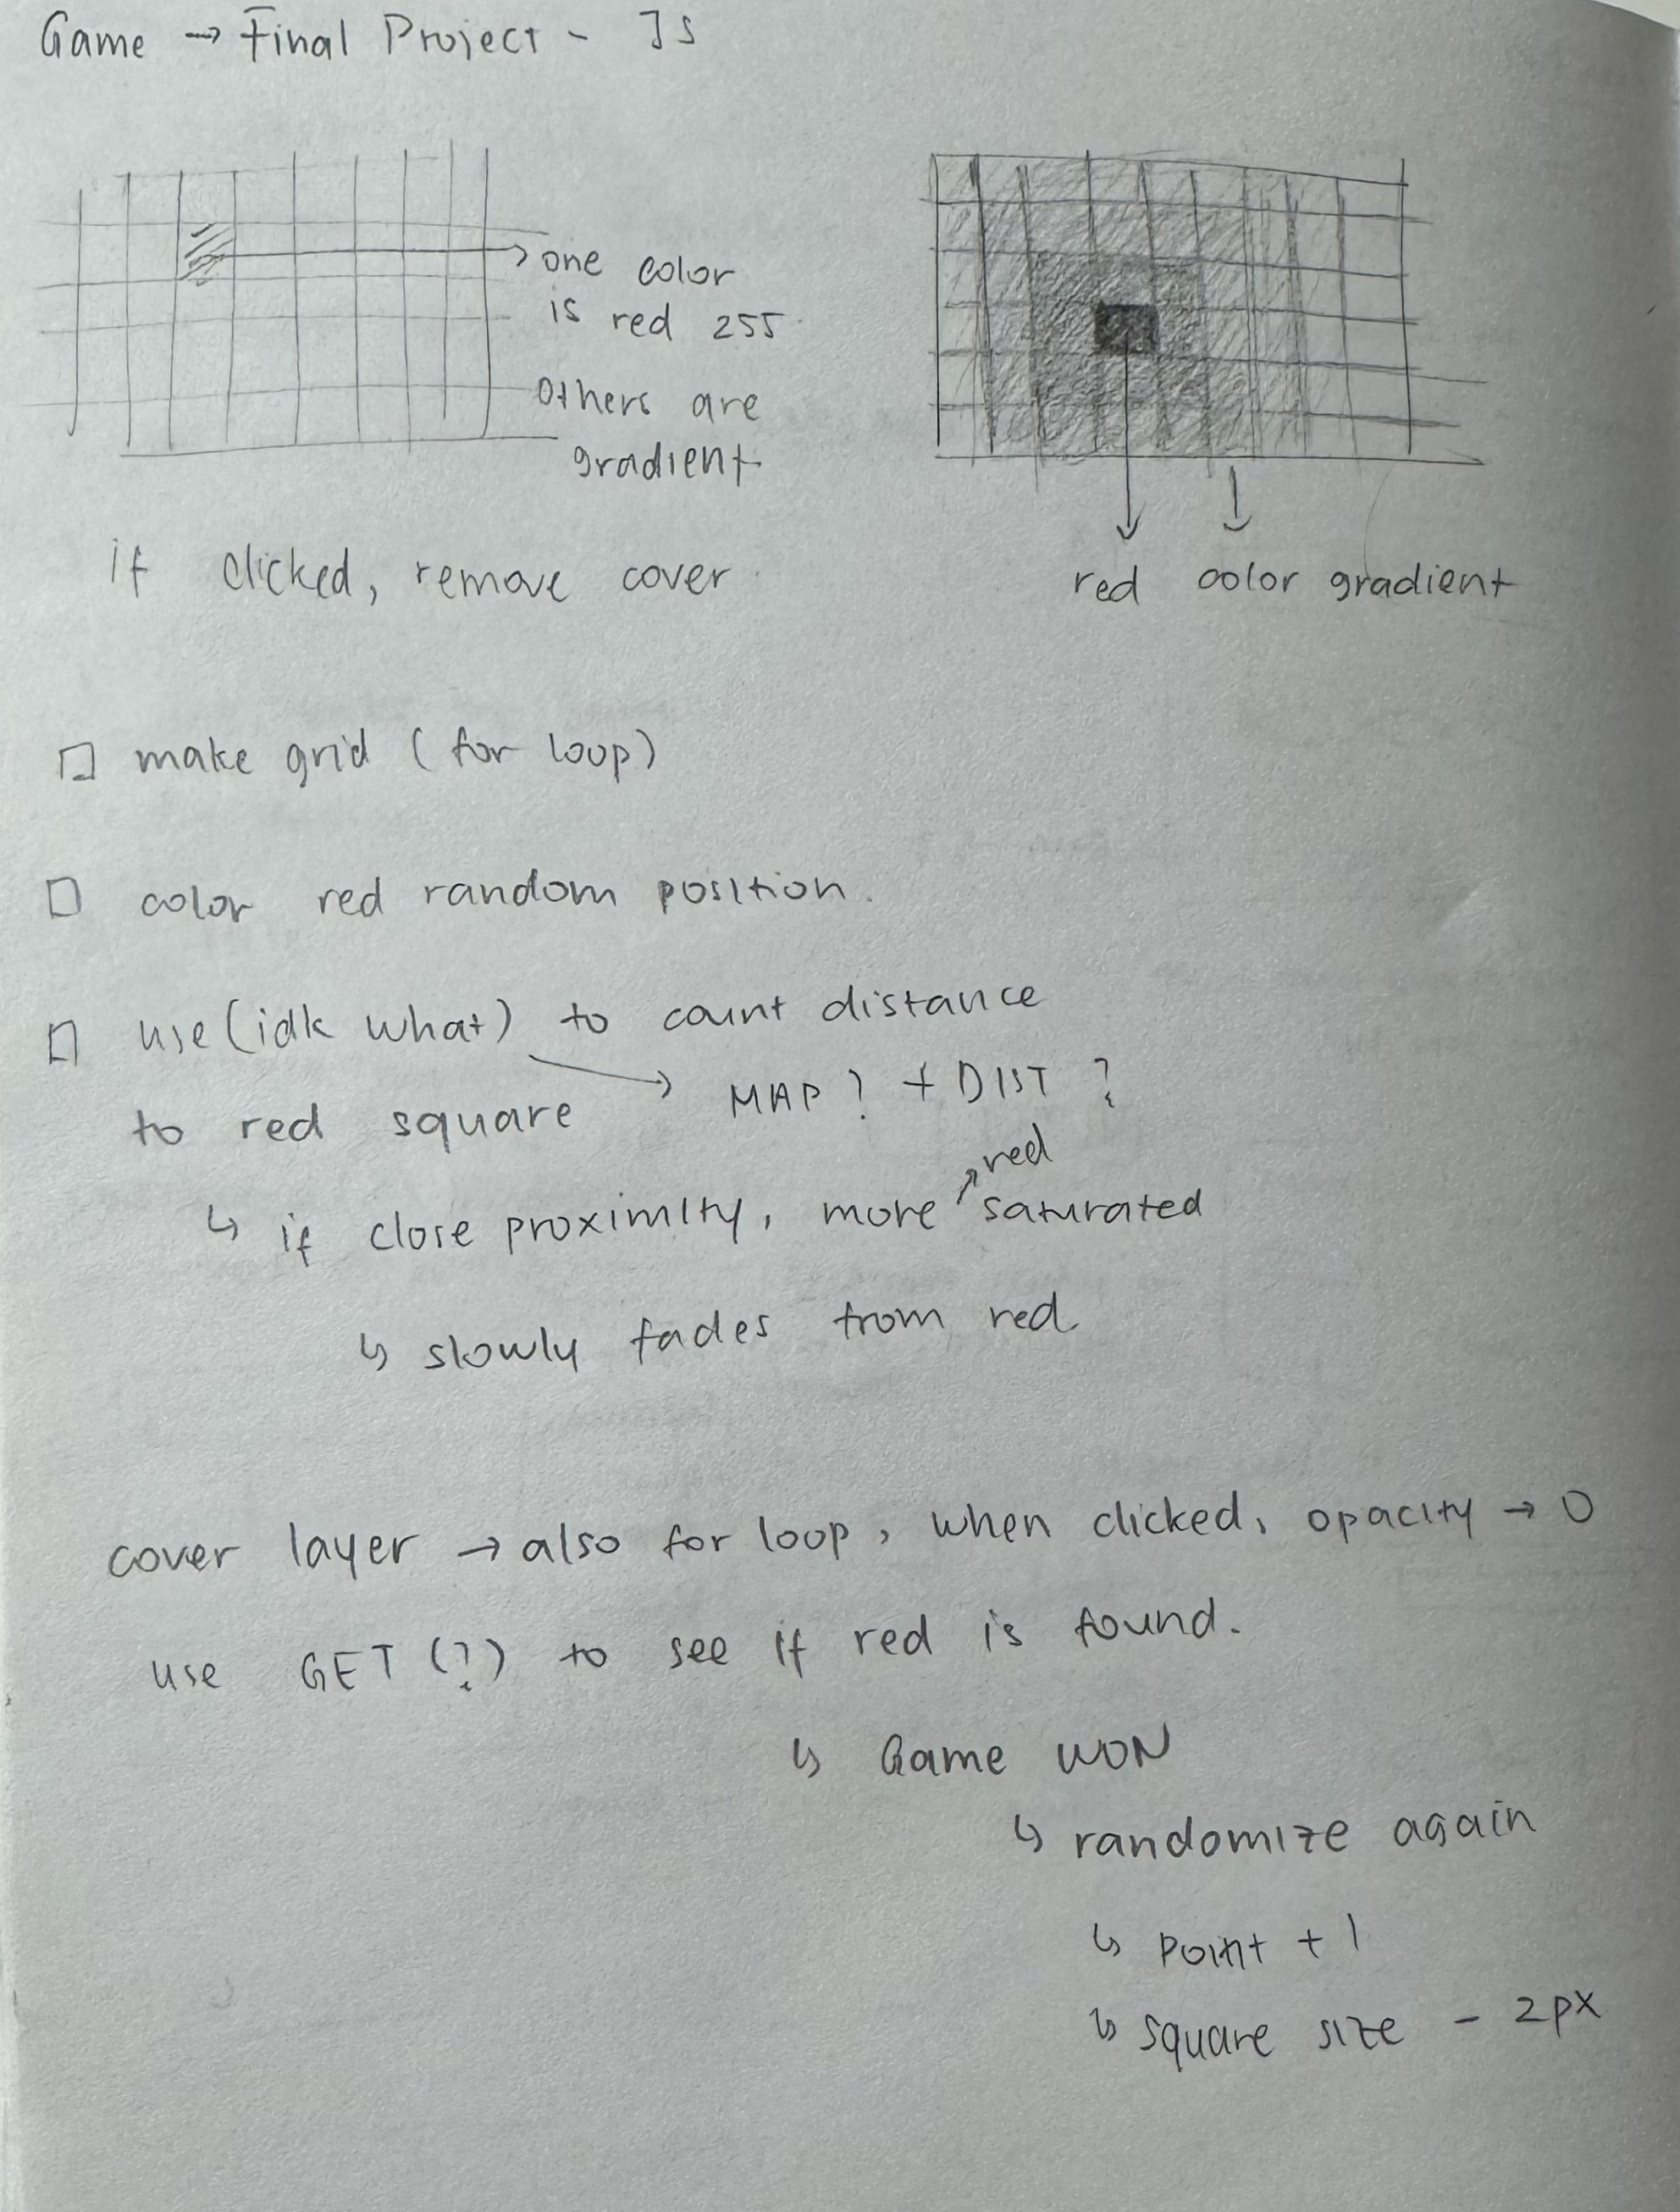 Game → Final Project - JS
one color
is red 255
others are
gradient
red color gradient
if clicked, remove cover
□ make grid (for loop)
□ color red random position.
□ use (idk what) to count distance
→ MAP? + DIST?
to red square
red
↳ if close proximity, more saturated
↳ slowly fades from red
cover layer → also for loop, when clicked, opacity → 0
use GET (?) to see if red is found.
↳ Game WON
↳ randomize again
↳ point + 1
↳ square size - 2px